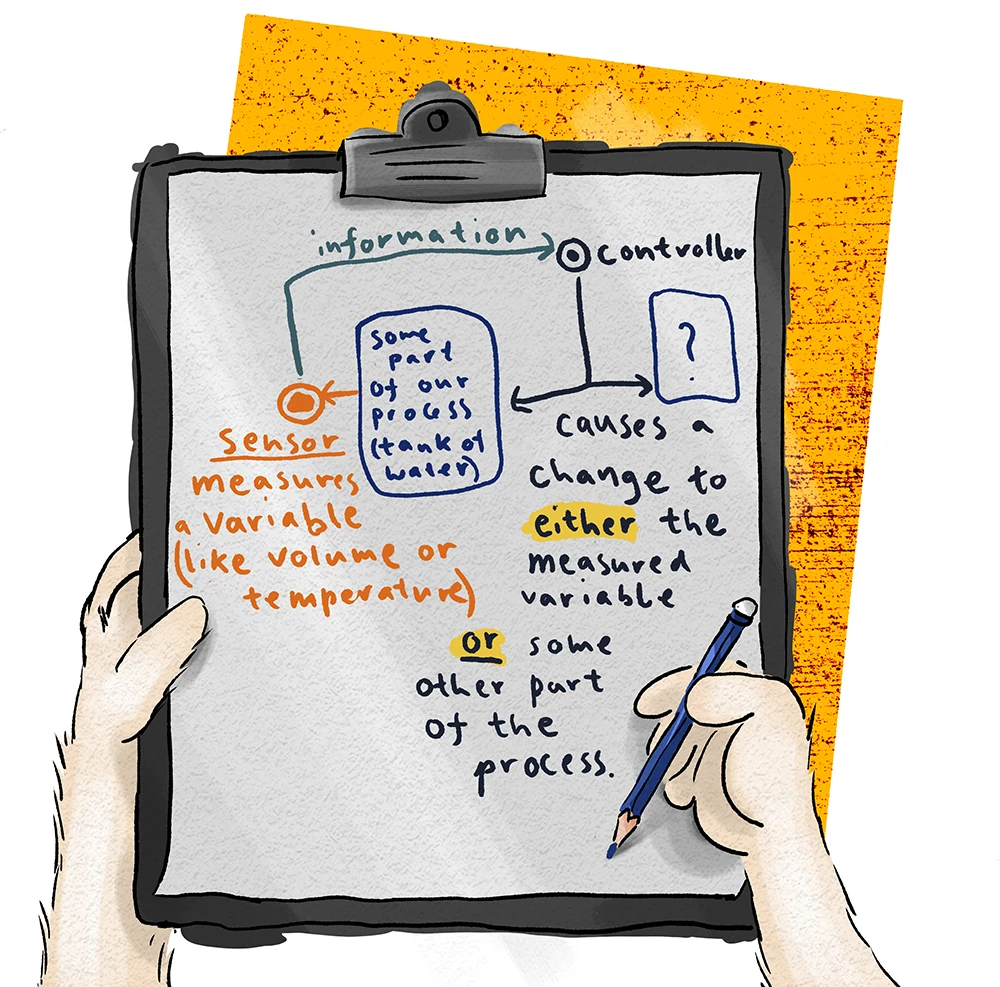 information
controller
some
part
of our
process
(tank of
water)
?
sensor
measures
a variable
(like volume or
temperature)
causes a
change to
either the
measured
variable
or some
other part
of the
process.